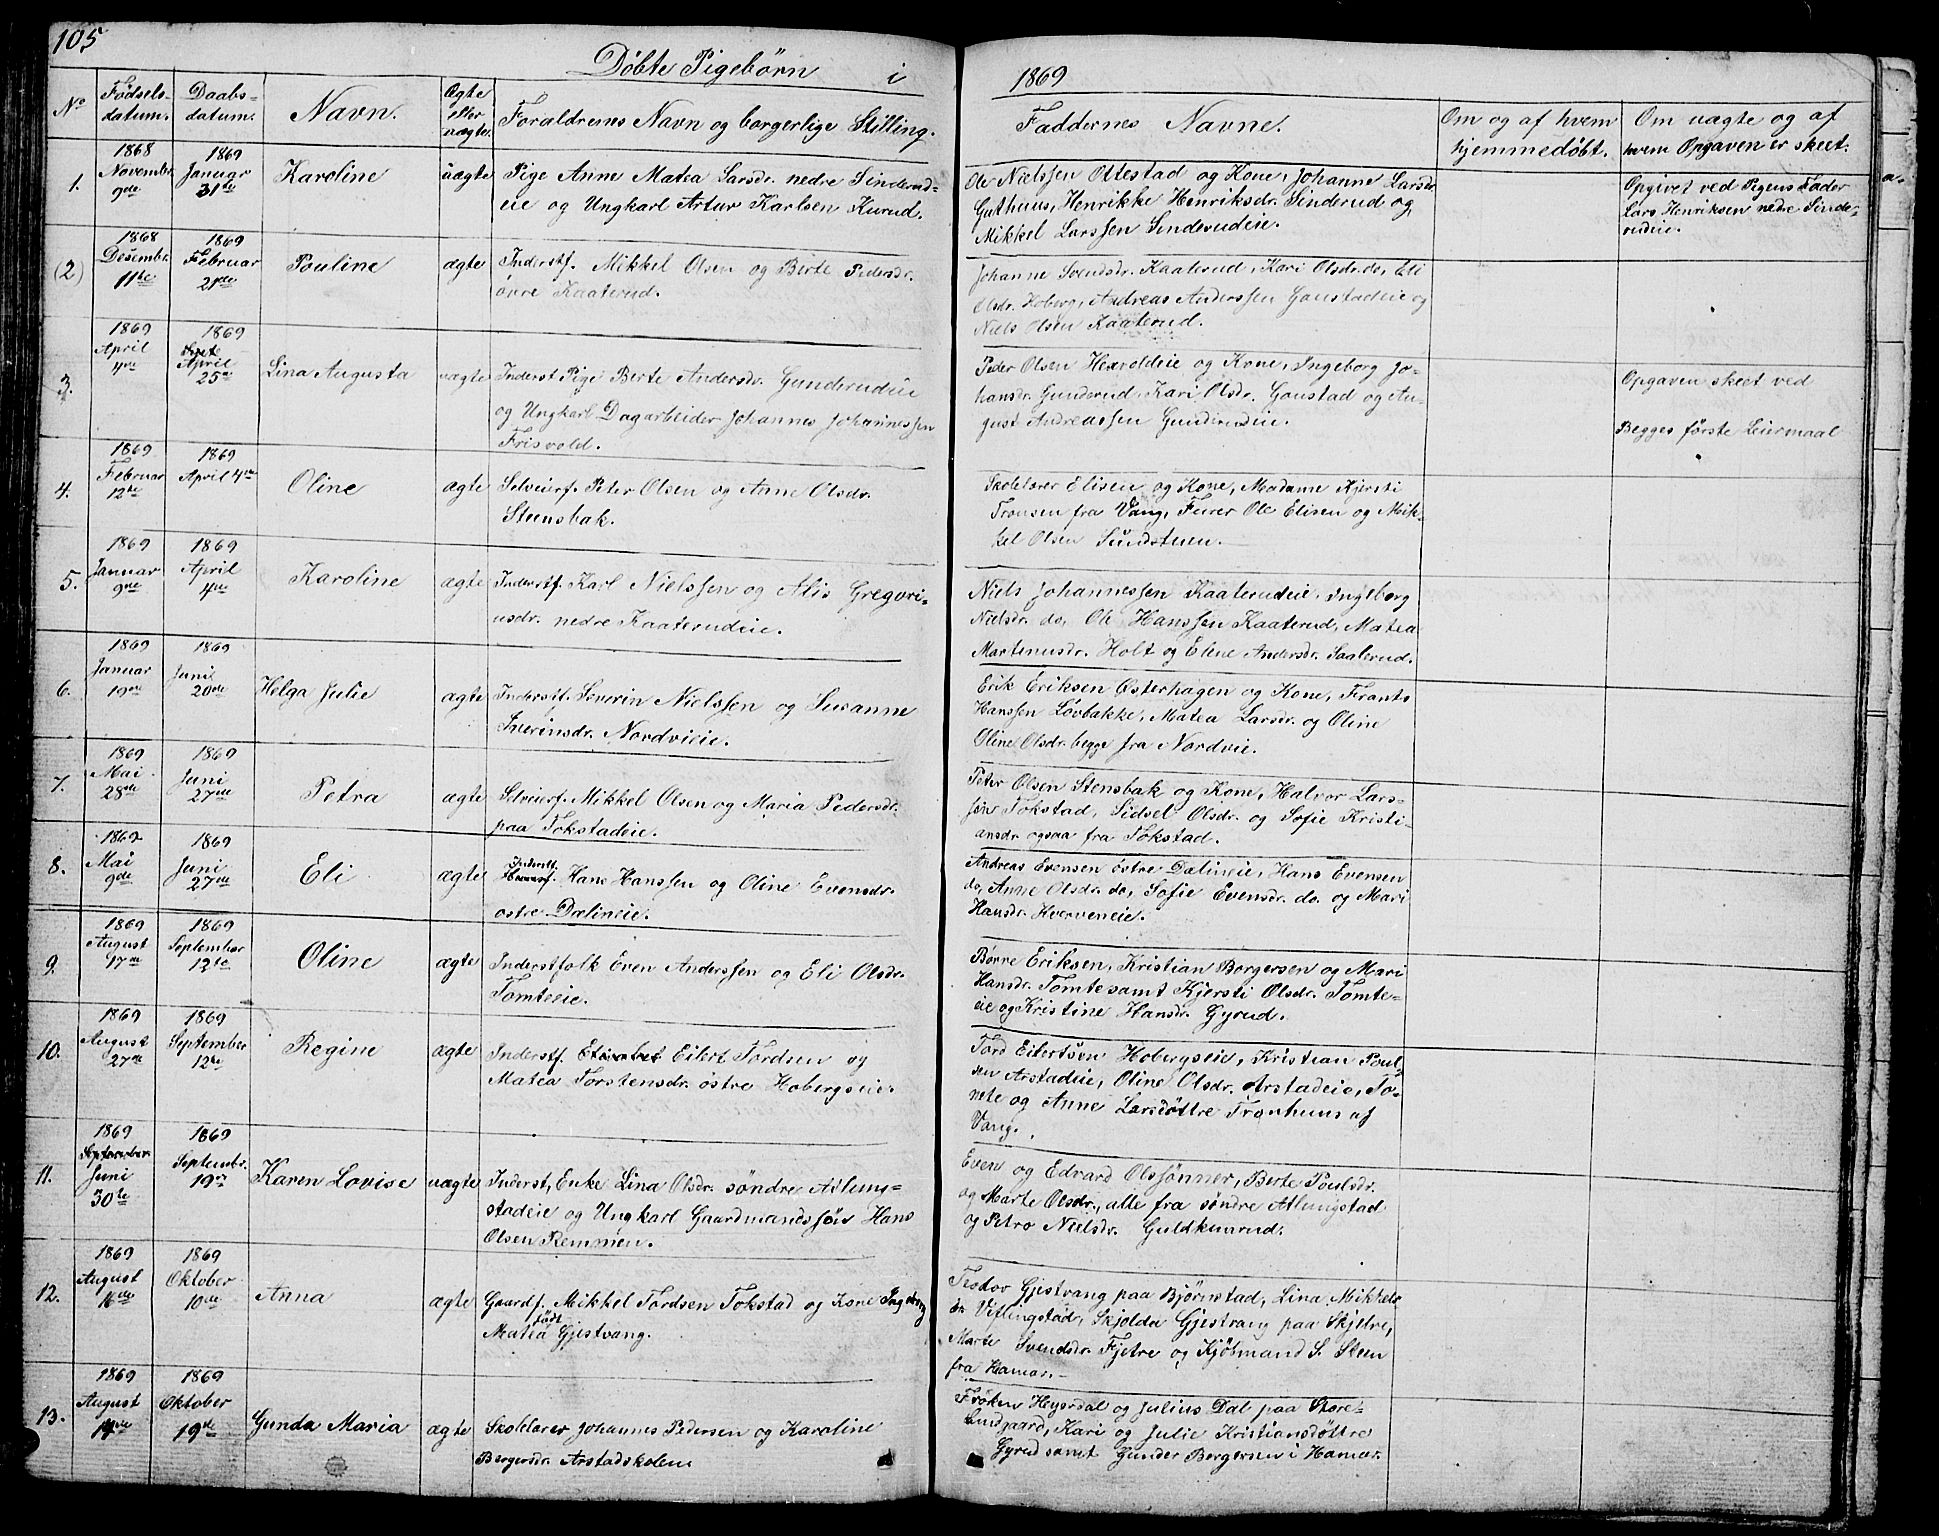 105
Döbte Pigebörn i 1869
No
Födsels-
datum.
Daabs-
datum.
Navn.
Ægte
eller
uægte.
Foraldrenes Navn og borgerlige Stilling.
Faddernes Navne.
Om og af hvem
hjemmedöbt.
Om uægte og af
hvem Opgaven er skeet.
1.
1868
Novembr.
9de
1869
Januar
31te
Karoline
uægte
Pige Anne Matea Larsdr. nedre Sinderud-
eie og Ungkarl Artur Karlsen Kurud.
Ole Nielssen Ottestad og Kone, Johanne Larsdr.
Guthuus, Henrikke Henriksdr. Sinderud og
Mikkel Larssen Sinderudeie.
Opgivet ved Pigens Fader
Lars Henriksen nedre Sinde-
rudeie.
(2)
1868
Desembr.
11te
1869
Februar
21de
Pouline
ægte
Inderstf. Mikkel Olsen og Berte Pedersdr.
övre Kaaterud.
Johanne Svendsdr. Kaaterud, Kari Olsdr. do, Eli
Olsdr. Hoberg, Andreas Anderssen Gaustadeie og
Niels Olsen Kaaterud.
3.
1869
April
4de
1869
April
25de
Lina Augusta
uægte
Inderst Pige Berte Andersdr. Gunderudeie
og Ungkarl Dagarbeider Johannes Johannessen
Frisvold.
Peder Olsen Heroldeie og Kone, Ingeborg Jo-
hansdr. Gunderud, Kari Olsdr. Gaustad og Au-
gust Andreassen Gunderudeie.
Opgaven skeet ved
Begges förste Leiermaal
4.
1869
Februar
12te
1869
April 4de
Oline
ægte
Selveierf. Peter Olsen og Anne Olsdr.
Stensbak.
Skolelærer Elisen og Kone, Madame Kjersti
Tronsen fra Vang, Furer Ole Elisen og Mik-
kel Olsen Sundstuen.
5.
1869
Januar
9de
1869
April
4de
Karoline
ægte
Inderstf. Karl Nielssen og Alis Gregori-
usdr. nedre Kaaterudeie.
Niels Johannessen Kaaterudeie, Ingeborg
Nielsdr. do, Ole Hanssen Kaaterud, Matea
Martinusdr. Holt og Elene Andersdr. Saaterud.
6.
1869
Januar
19de
1869
Juni
20de
Helga Julie
ægte
Inderstf. Severin Nielssen og Susanne
Sverinsdr. Nordvieie.
Erik Eriksen Osterhagen og Kone, Frants
Hanssen Lövbakke, Matea Larsdr. og Oline
Oline Olsdr. begge fra Nordvie.
7.
1869
Mai
28de
1869
Juni
27de
Petra
ægte
Selveierf. Mikkel Olsen og Maria Pedersdr.
paa Tokstadeie.
Peter Olsen Stensbak og Kone, Halvor Lars-
sen Tokstad, Sidsel Olsdr. og Sofie Kristi-
ansdr. ogsaa fra Tokstad.
8.
1869
Mai
9de
1869
Juni
27de
Eli
ægte
Inderstf. Hans Hanssen og Oline Evensdr.
ostre Dælineie.
Andreas Evensen östre Dælineie, Hans Evensen
do, Anne Olsdr. do, Sofie Evensdr. do. og Mari
Hansdr. Kverveneie.
9.
1869
August
17de
1869
September
12te
Oline
ægte
Inderstfolk Even Anderssen og Eli Olsdr.
Tomteeie.
Börre Eriksen, Kristian Borgersen og Mari
Hansdr. Tomte samt Kjersti Olsdr. Tomte-
eie og Kristine Hansdr. Gyrud.
10.
1869
August
27de
1869
September
12te
Regine
ægte
Inderstf. Eilert Tordsen og
Matea Torstensdr. östre Hobergseie.
Tord Eilertsen Hobergseie, Kristian Poul-
sen Arstadeie, Oline Olsdr. Arstadeie, To-
nete og Anne Larsdöttre Tronhuus af
Vang.
11.
1869
September
Juni
30te
1869
Septembr.
19de
Karen Lovise
uægte
Inderst, Enke Lina Olsdr. söndre Atlung-
stadeie og Ungkarl Gaardmandssön Hans
Olsen Remmen.
Even og Edvard Olssönner, Berte Poulsdr.
og Marte Olsdr., alle fra söndre Atlungstad
og Petra Nielsdr. Guldkuurud.
12.
1869
August
16de
1869
Oktober
10de
Anna
ægte
Gaardf. Mikkel Tordsen Tokstad og Kone Ingeborg
Matea födt Gjestvang.
Teodor Gjestvang paa Björnstad, Lina Mikkels
dr. Viflingstad, Skjolda Gjestvang paa Skjetre,
Marte Svendsdr. Fjetre og Kjöbmand S. Steen
fra Hamar.
13.
1869
August
14de
1869
Oktober
19de
Gunda Maria
ægte
Skolelærer Johannes Pedersen og Karoline
Bergersdr. Arstadskolen
Fröken Heyerdal og Julius Dal paa Store-
Lundgaard, Kari og Julie Kristiansdöttre
Gyrud samt Gunder Bergersen i Hamar.